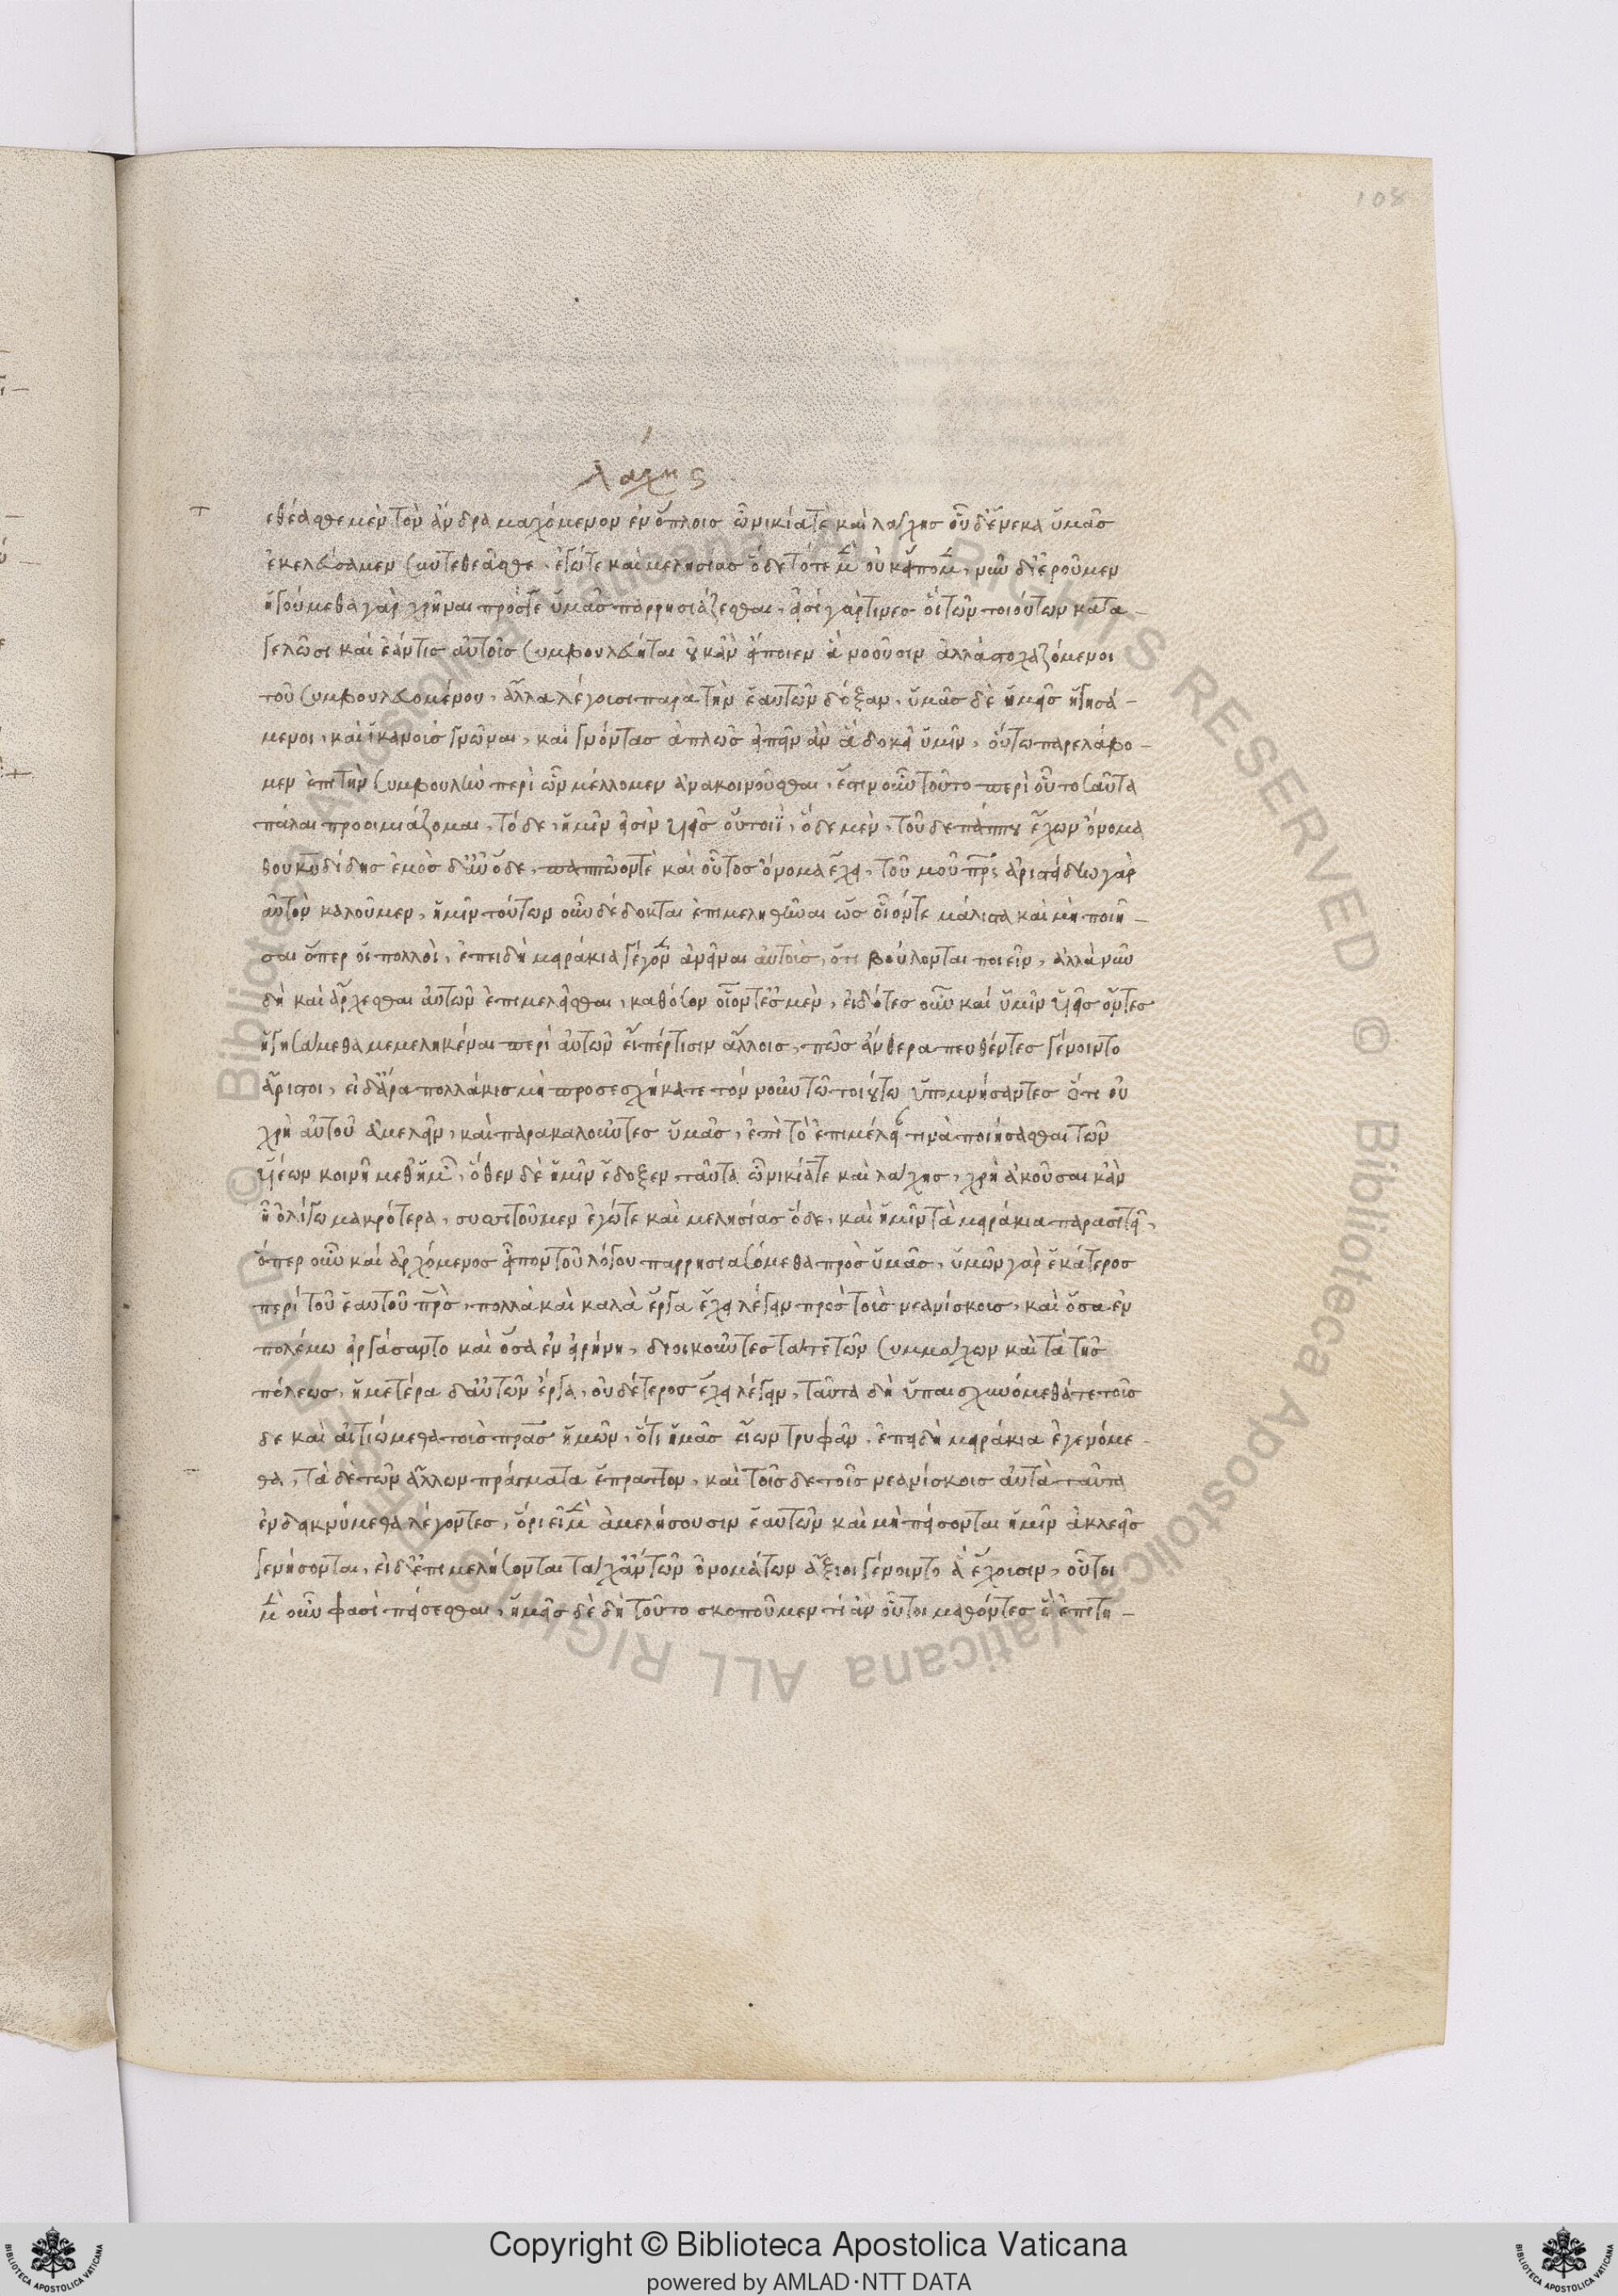 108
λάχης
τεθέασθε μὲν τὸν ἄνδρα μαχόμενον ἐν ὅπλοισ ὦ νικίατὲ καὶ λάχησ οὗ δ' ἕνεκα ὑμᾶσ
ἐκελεύσαμεν συνθεάσθε ἐγώτε καὶ μελησίασ ὅδε τότε μὲν οὐκ εἴπομεν, νῦν δ' ἐροῦμεν
ἡγούμεθα γὰρ χρῆναι πρόσγε ὑμᾶσ παρρησιάζεσθαι, εἰσὶ γάρ τινεσ οἳ τῶν τοιούτων κατα-
γελῶσι καὶ ἐάν τισ αὐτοῖσ συμβουλεύηται οὐκ ἂν εἴποιεν ἃ νοοῦσιν ἀλλὰ στοχαζόμενοι
τοῦ συμβουλευομένου, ἄλλα λέγοισι παρὰ τὴν ἑαυτῶν δόξαν, ὑμᾶσ δὲ ἡμεῖσ ἡγησά-
μενοι, καὶ ἱκανοὺσ γνῶναι, καὶ γνόντασ ἁπλῶσ εἰπεῖν ἂν ἃ δοκεῖ ὑμῖν, οὕτω παρελάβο-
μεν ἐπὶ τὴν συμβουλὴν περὶ ὧν μέλλομεν ἀνακοινοῦσθαι, ἔστιν οὖν τοῦτο περὶ οὗ τοσαῦτα
πάλαι προοιμιάζομαι, τόδε, ἡμῖν εἰσὶν υἱεῖσ οὑτοιῒ, ὅδε μὲν, τοῦδε πάππου ἔχων ὄνομα
θουκυδίδησ ἐμὸσ δ' αὖ ὅδε, παππῶον τὲ καὶ οὗτοσ ὄνομα ἔχει, τοῦ μοῦ πρσ ἀριστείδην γὰρ
αὐτὸν καλοῦμεν, ἡμῖν τούτων οὖν δέδοκται ἐπιμεληθῆναι ὡσ οἷόντε μάλιστα καὶ μὴ ποιῆ-
σαι ὅπερ οἱ πολλοὶ, ἐπειδὴ μειράκια γέγονεν ἀνεῖναι αὐτοὺσ, ὅτι βούλονται ποιεῖν, ἀλλὰ νῦν
δὴ καὶ ἄρχεσθαι αὐτῶν ἐπιμελεῖσθαι, καθόσον οἷοντ' ἐσμὲν, εἰδότεσ οὖν καὶ ὑμῖν υἱεῖσ ὄντεσ
ἡγησάμεθα μεμεληκέναι περὶ αὐτῶν εἴπέρ τισιν ἄλλοισ, πῶσ ἂν θεραπευθέντεσ γένοιντο
ἄριστοι, εἰ δ' ἄρα πολλάκισ μὴ προσεσχήκατε τὸν νοῦν τῶ τοιούτω ὑπομνήσαντεσ ὅτι οὐ
χρὴ αὐτοῦ ἀμελεῖν, καὶ παρακαλοῦντεσ ὑμᾶσ, ἐπὶ τὸ ἐπιμέλειάν τινὰ ποιήσασθαι τῶν
υἱέων κοινῆ μεθ' ἡμῶν, ὅθεν δὲ ἡμῖν ἔδοξεν ταῦτα ὦ νικίατε καὶ λάχησ, χρὴ ἀκοῦσαι κἂν
ἦ ὀλίγω μακρότερα, συσσιτοῦμεν ἐγώτε καὶ μελησίασ ὅδε, καὶ ἡμῖν τὰ μειράκια παρασιτεῖ,
ὅπερ οὖν καὶ ἀρχόμενοσ εἶπον τοῦ λόγου παρρησιασόμεθα πρὸσ ὑμᾶσ, ὑμῶν γὰρ ἑκάτεροσ
περὶ τοῦ ἑαυτοῦ πρὸσ, πολλὰ καὶ καλὰ ἔργα ἔχει λέγειν πρὸσ τοὺσ νεανίσκουσ, καὶ ὅσα ἐν
πολέμω εἰργάσαντο καὶ ὅσα ἐν εἰρήνη, διοικοῦντεσ τάτε τῶν συμμάχων καὶ τὰ τῆσ
πόλεωσ, ἡμετέρα δ' αὐτῶν ἔργα, οὐδέτεροσ ἔχει λέγειν, ταῦτα δὴ ὑπαισχυνόμεθά τε τοῦσ
δε καὶ αἰτιώμεθα τοὺσ πρασ ἡμῶν, ὅτι ἡμᾶσ εἴων τρυφᾶν, ἐπειδὴ μειράκια ἐγενόμε-
θα, τὰ δὲ τῶν ἄλλων πράγματα ἔπραττον, καὶ τοῖσδε τοῖσ νεανίσκοισ αὐτὰ ταῦτα
ἐνδεικνύμεθα λέγοντεσ, ὅτι εἰ μὲν ἀμελήσουσιν ἑαυτῶν καὶ μὴ πείσονται ἡμῖν ἀκλεεῖσ
γενήσονται, εἰ δ' ἐπιμελήσονται τάχ' ἂν τῶν ὀνομάτων ἄξιοι γένοιντο ἃ ἔχουσιν, οὗτοι
μὲν οὖν φασὶ πείσεσθαι, ἡμεῖσ δὲ δὴ τοῦτο σκοποῦμεν τί ἂν οὗτοι μαθόντεσ ἢ ἐπιτη-
Copyright © Biblioteca Apostolica Vaticana
powered by AMLAD·NTT DATA